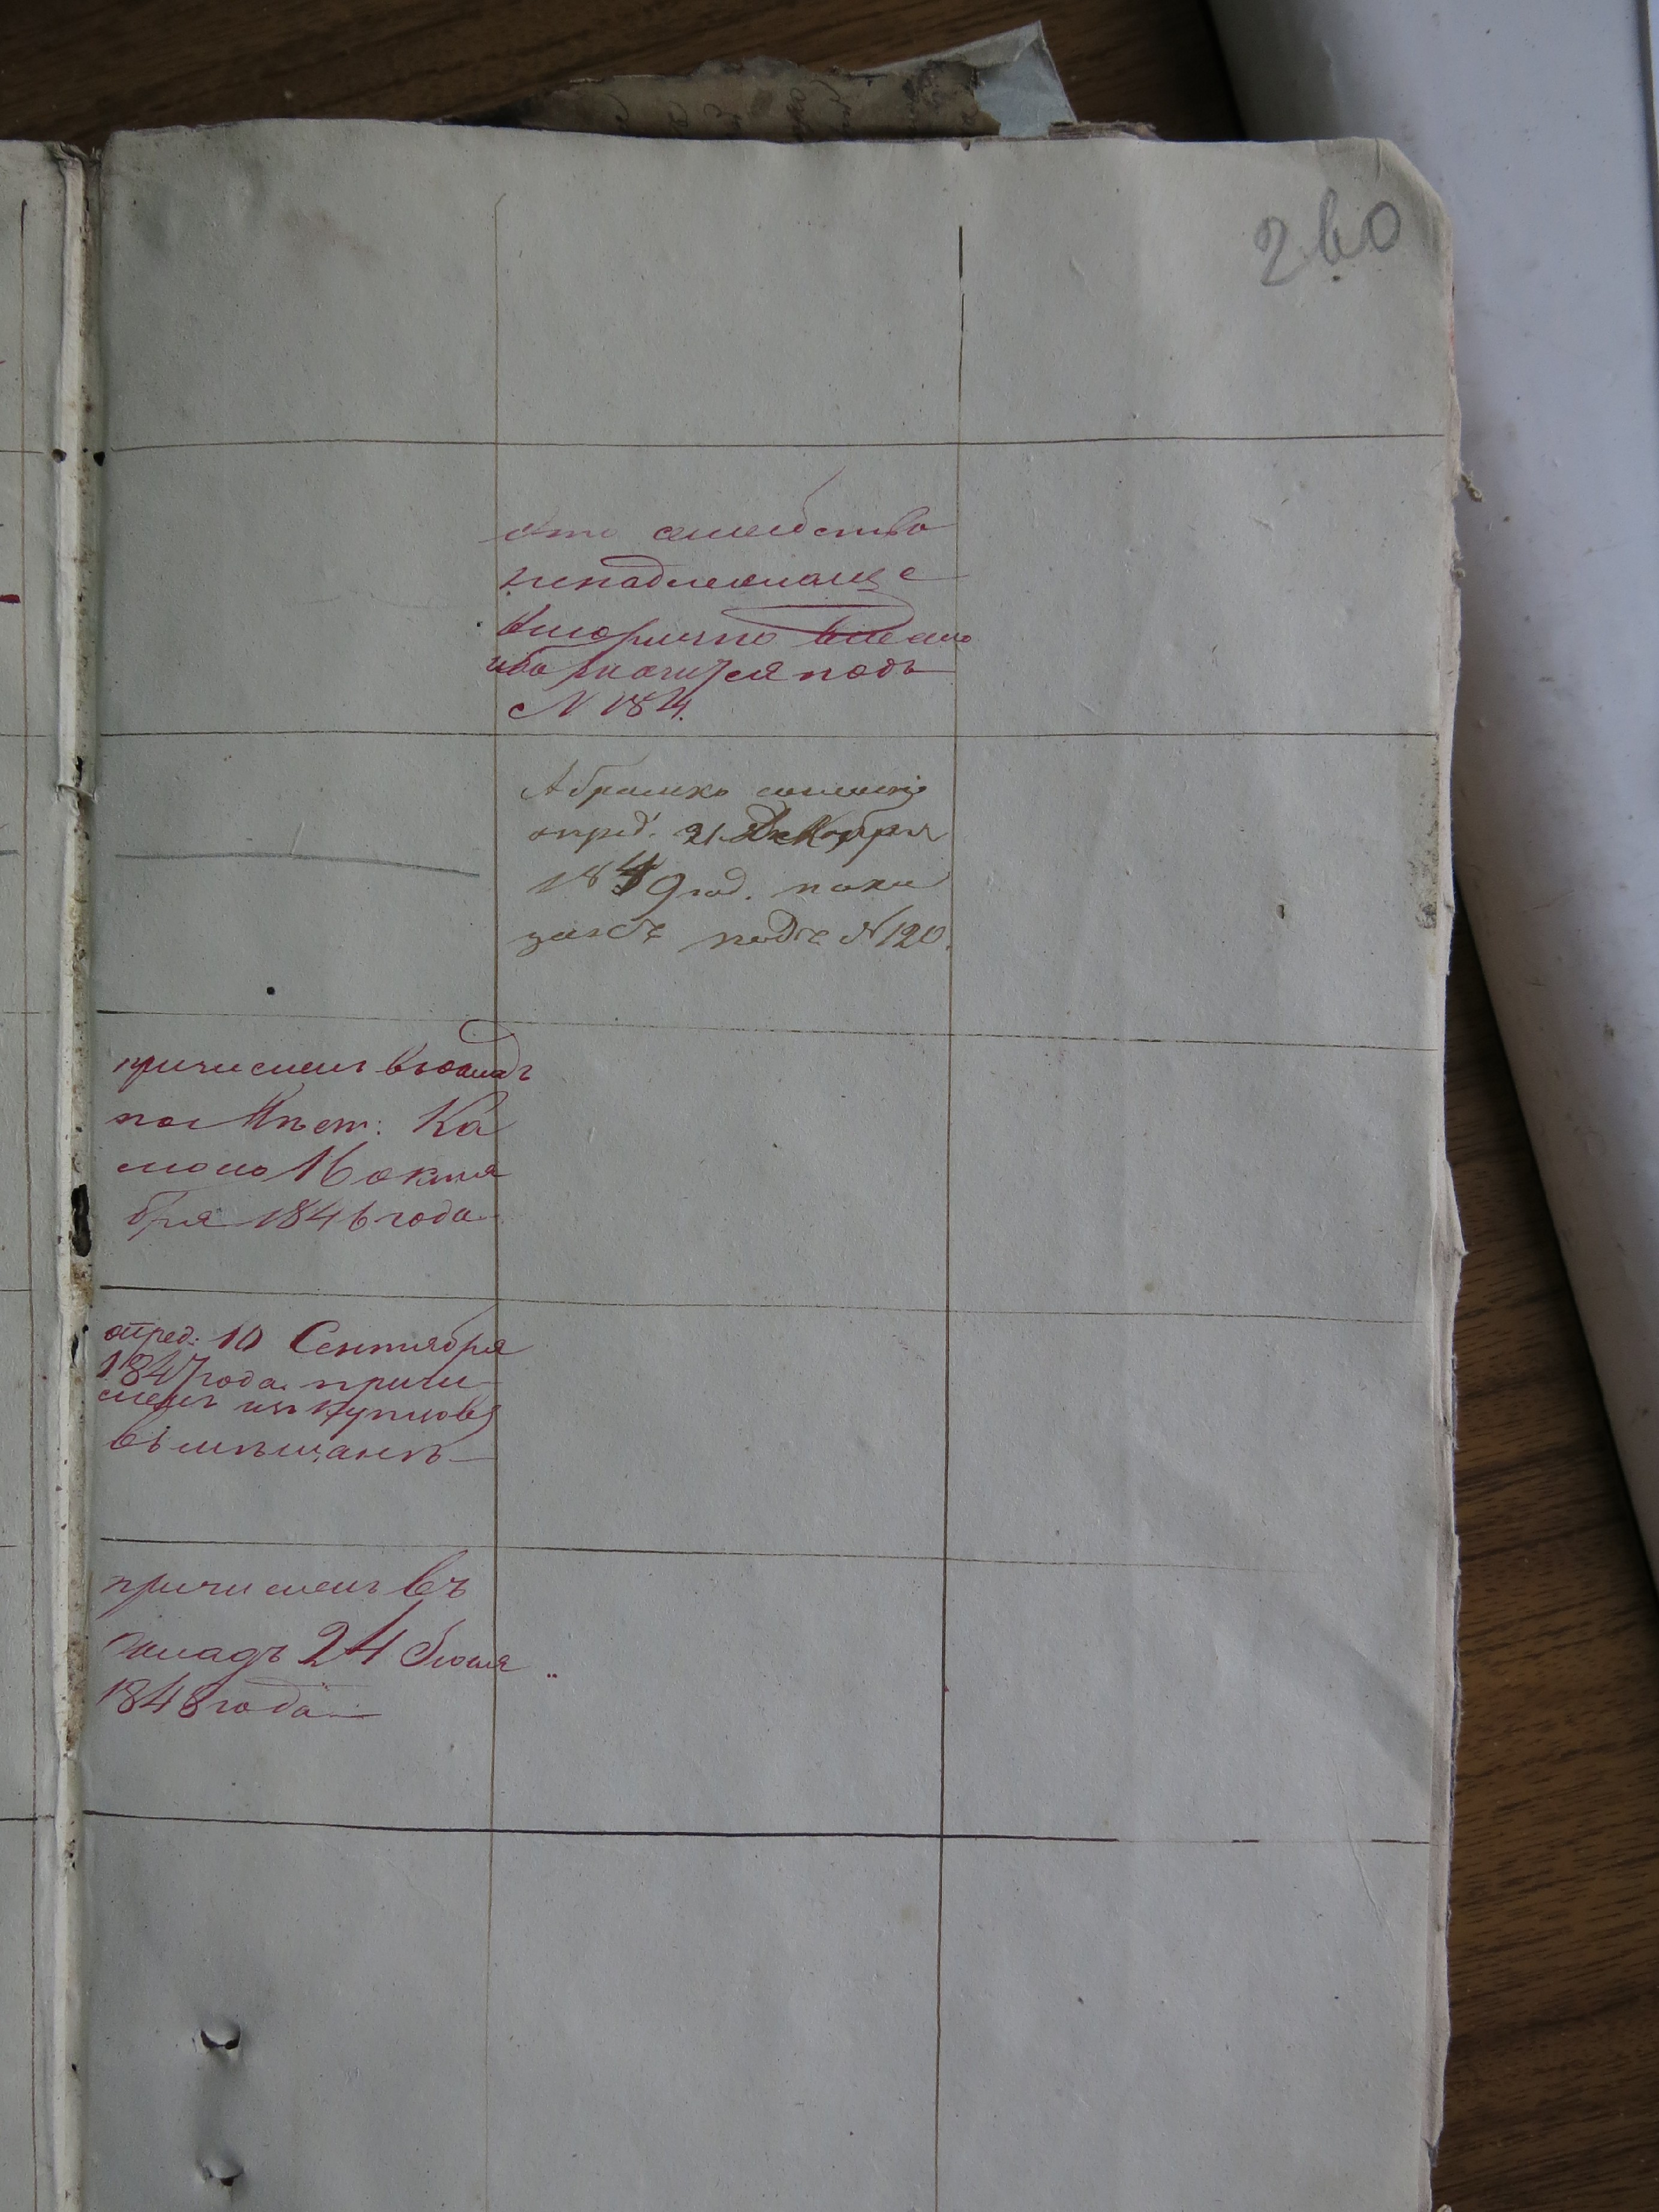 260
Это семейство
ненадлежаще
вторично
ибо значится подъ
N 184.
Абрамко
опред. 21 Декабря
1849 год. пока
занъ подъ N 120.
причисленъ въ окладъ
по Ка
16 октя
бря 1846 года
опред: 10 Сентября
1847 года причи
сленъ изъ купцовъ
въ мѣщанъ
причисленъ въ
окладъ 24 Июля
1848 года